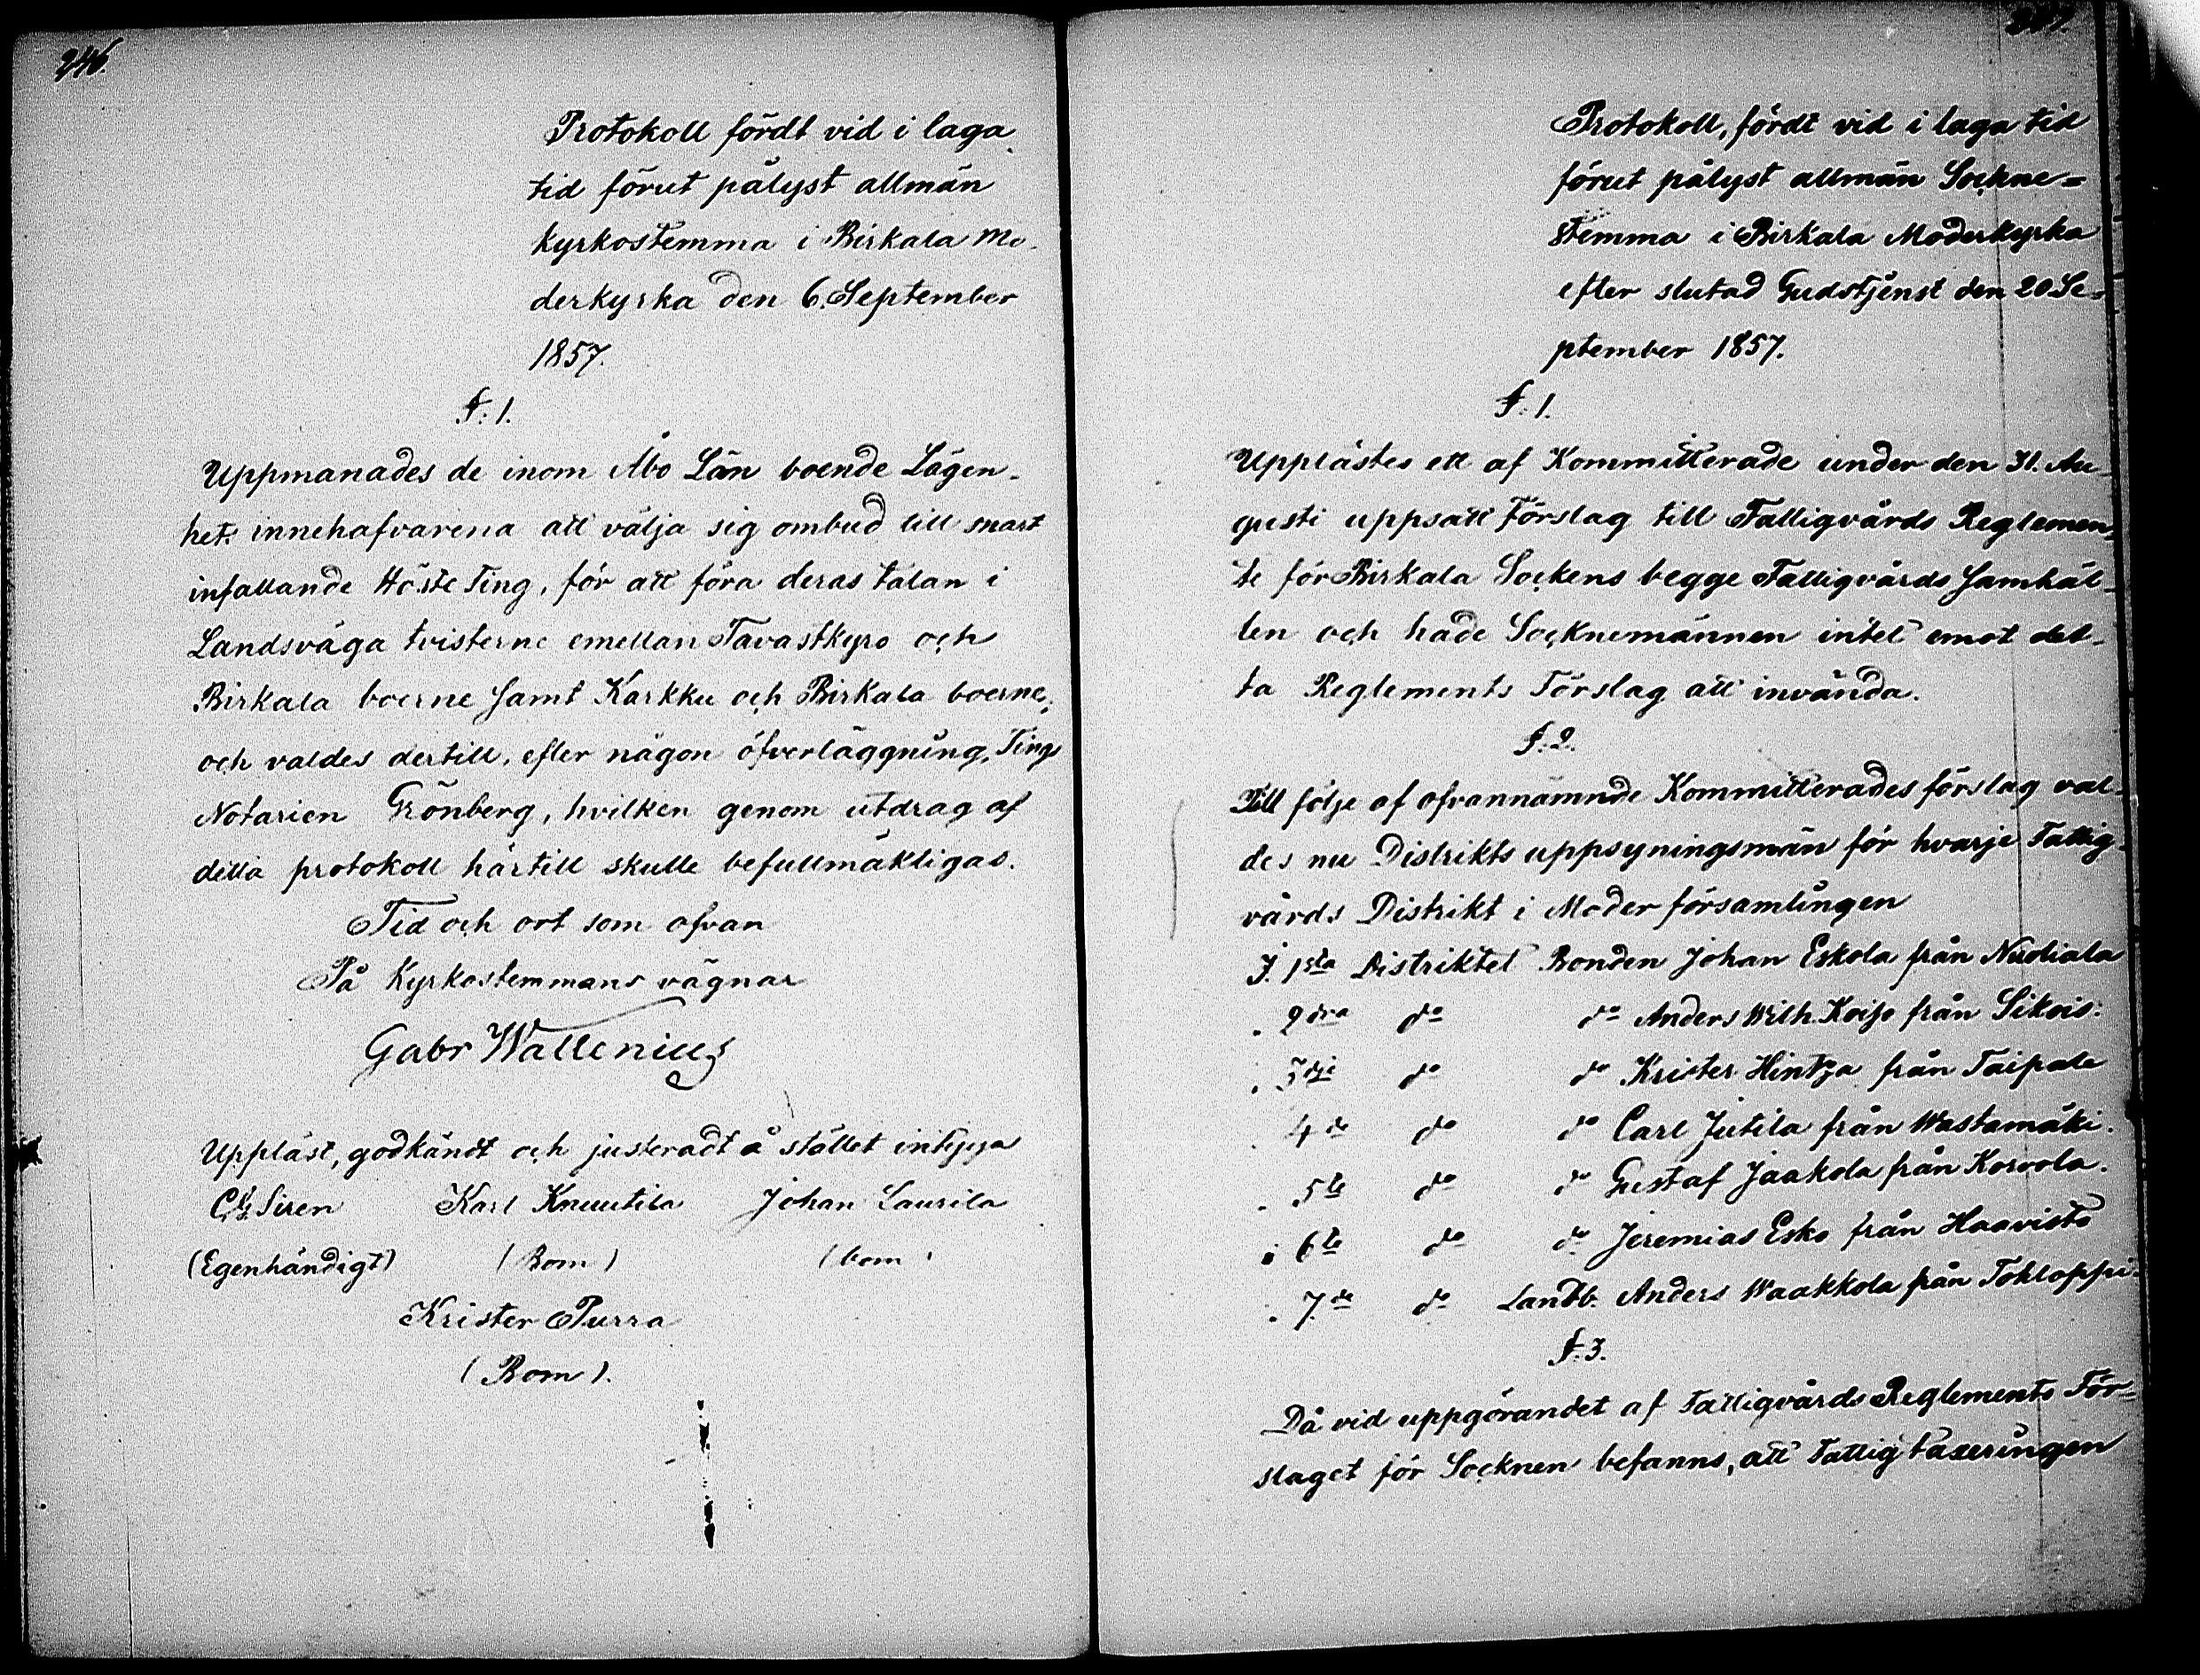 246.
Protokoll fördt vid i laga
tid förut pålyst allmän
kyrkostemma i Birkala Mo-
derkyrka den 6. September
1857.
§. 1.
Uppmanades de inom Åbo Län boende Lägen-
hets innehafvarena att välja sig ombud till snart
infallande Höste Ting, för att föra deras talan i
Landsväga tvisterne emellan Tavastkyro och
Birkala boerne samt Karkku och Birkala boerne,
och valdes dertill, efter någon öfverläggning, Tings
Notarien Grönberg, hvilken genom utdrag af
detta protokoll härtill skulle befullmäktigas.
Tid och ort som ofvan
På Kyrkostemmans vägnar
Gabr Wallenius
Uppläst, godkändt och justeradt å stället intyga
C.G. Siren Karl Knuutila Johan Laurila
(Egenhändigt) (Bom) (bom)
Krister Purra
(Bom).
247.
Protokoll, fördt vid i laga tid
förut pålyst allmän Sockne=
stemma i Birkala Moderkyrka
efter slutad Gudstjenst den 20 Se-
ptember 1857.
§. 1.
Upplästes ett af Kommitterade under den 31. Au-
gusti uppsatt Förslag till Fattigvårds Reglemen-
te för Birkala Sockens begge Fattigvårds Samhäl-
len och hade Socknemännen intet emot det-
ta Reglements Förslag att invända.
§. 2.
Till följe af ofvannämnde Kommitterades förslag val-
des nu Distrikts uppsyningsmän för hvarje Fattig-
vårds Distrikt i Moder församlingen
I 1sta Distriktet Bonden Johan Eskola från Nuoliala
" 2dra do do Anders Wilh. Koijo från Sikois:
" 3dje do do Krister Hintza från Taipale
" 4de do do Carl Jutila från Wastamäki.
" 5te do do Gustaf Jaakola från Korvola.
" 6te do do Jeremias Esko från Haavisto
" 7de do Landb. Anders Waakkola från Tohloppi.
§. 3.
Då vid uppgörandet af Fattigvårds Reglements För-
slaget för Socknen befanns, att Fattig taxeringen